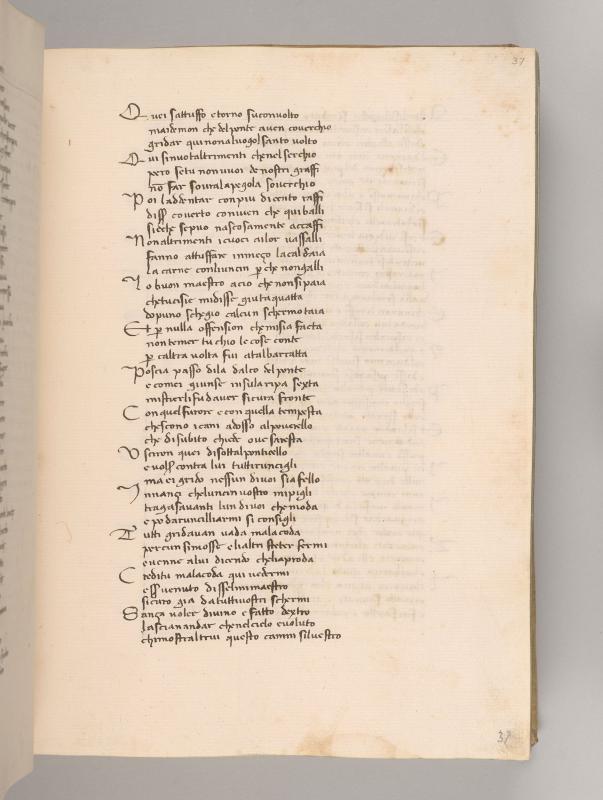 37
Quei sattuffo e torno su convolto
mai demon che del ponte avien coverchio
gridar qui non a luogo l santo volto
Qui si nuota altrimenti che nel serchio
pero se tu non vuoi de nostri graffi
nō far sovra la pegola soverchio
Poi laddentar con piu di cento raffi
disse coverto convien che qui balli
si che se puo nascosamente accaffi
Non altrimenti i cuoci ai lor vassalli
fanno attuffare in mezo la caldaia
la carne con li uncin p che non galli
Lo buon maestro acio che non si paia
che tu ci sie mi disse giu taquatta
dopo uno schegio calcun schermo taia
Et p nulla offension che mi sia facta
non temer tu chio le cose conte
p caltra volta fui a tal baratta
Poscia passo di la dal co del ponte
e comei giunse in su la ripa sexta
mistier li fu daver sicura fronte
Con quel furore e con quella tempesta
che scono i cani adosso al poverello
che di subito chiede ove saresta
Usciron quei di sotto al ponticello
e volser contra lui tutti runcigli
ma ei grido nessun di voi sia fello
Innanzi che luncin vostro mi pigli
tragasavanti lun di voi che moda
e po darunciliarmi si consigli
Tutti gridavan vada malacoda
per cun si mosse e li altri stetter fermi
e venne a lui dicendo che li aproda
Credi tu malacoda qui vedermi
esser venuto disse l mi maestro
sicuro gia da tutti vostri schermi
Sanza voler divino e fatto dextro
lascian andar che nel cielo e voluto
chi mostraltrui questo camin silvestro
37